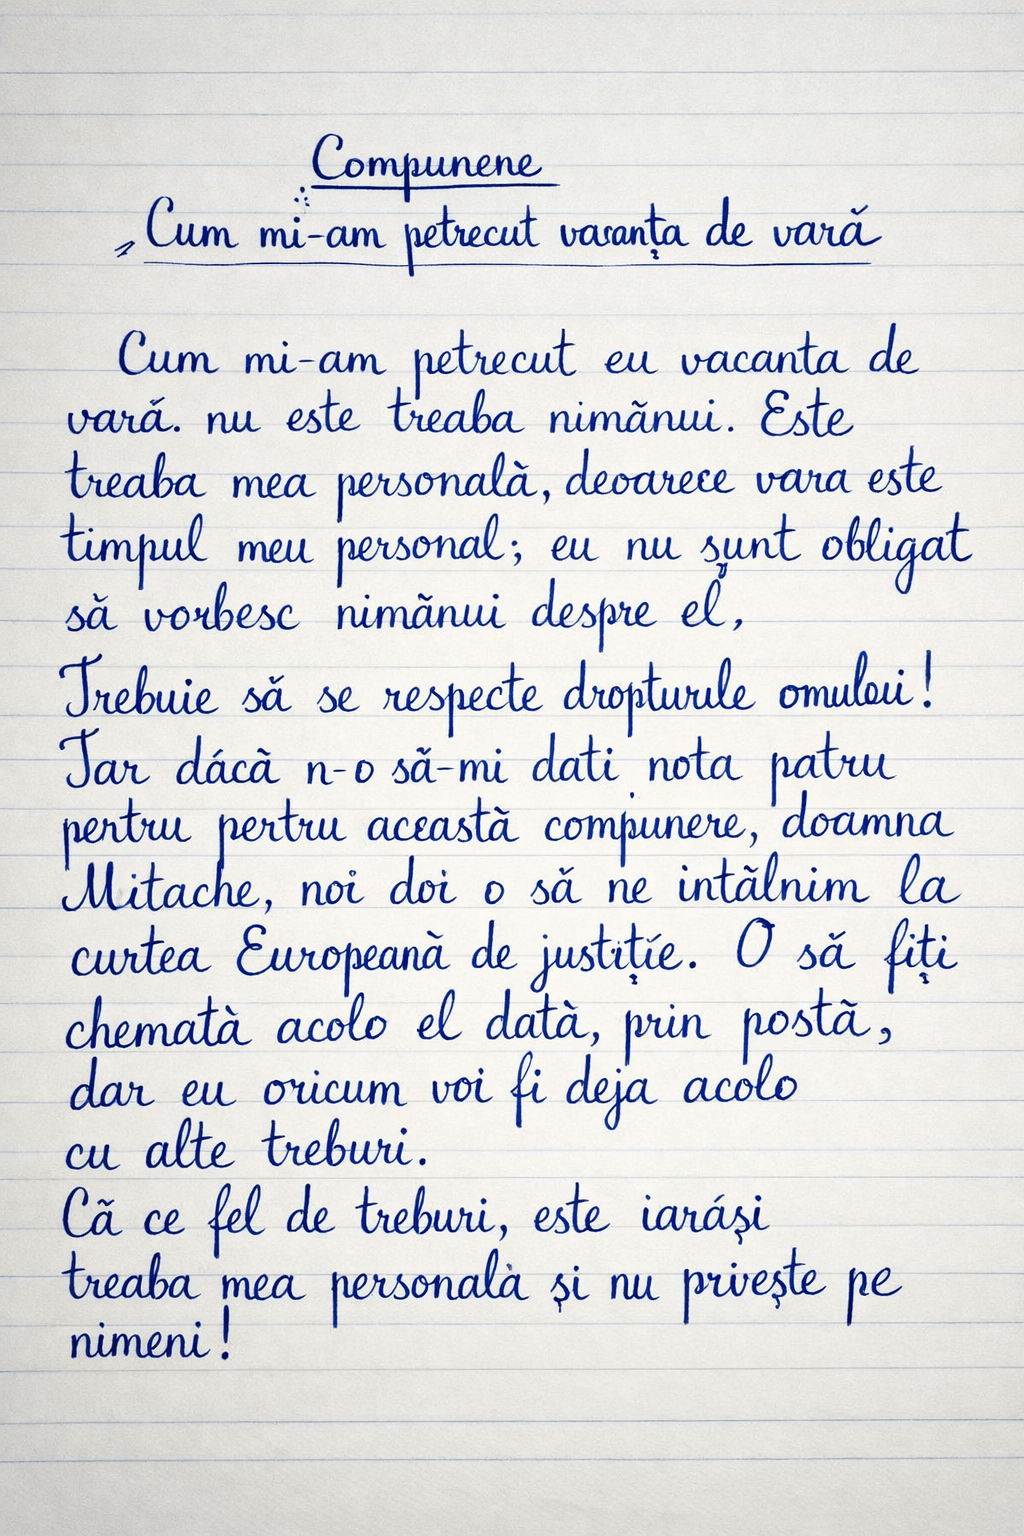 Compunene
„Cum mi-am petrecut vacanța de vară
Cum mi-am petrecut eu vacanta de
vară. nu este treaba nimãnui. Este
treaba mea personalà, deoarece vara este
timpul meu personal; eu nu șunt obligat
să vorbesc nimãnui despre el,
Trebuie să se respecte dropturile omului!
Iar dácà n-o sã-mi dati nota patru
pertru pertru aceastà compunere, doamna
Mitache, noi doi o sã ne intãlnim la
curtea Europeanà de justiție. O sã fiți
chematà acolo el datà, prin postã,
dar eu oricum voi fi deja acolo
cu alte treburi.
Cã ce fel de treburi, este iaráși
treaba mea personalà și nu privește pe
nimeni!